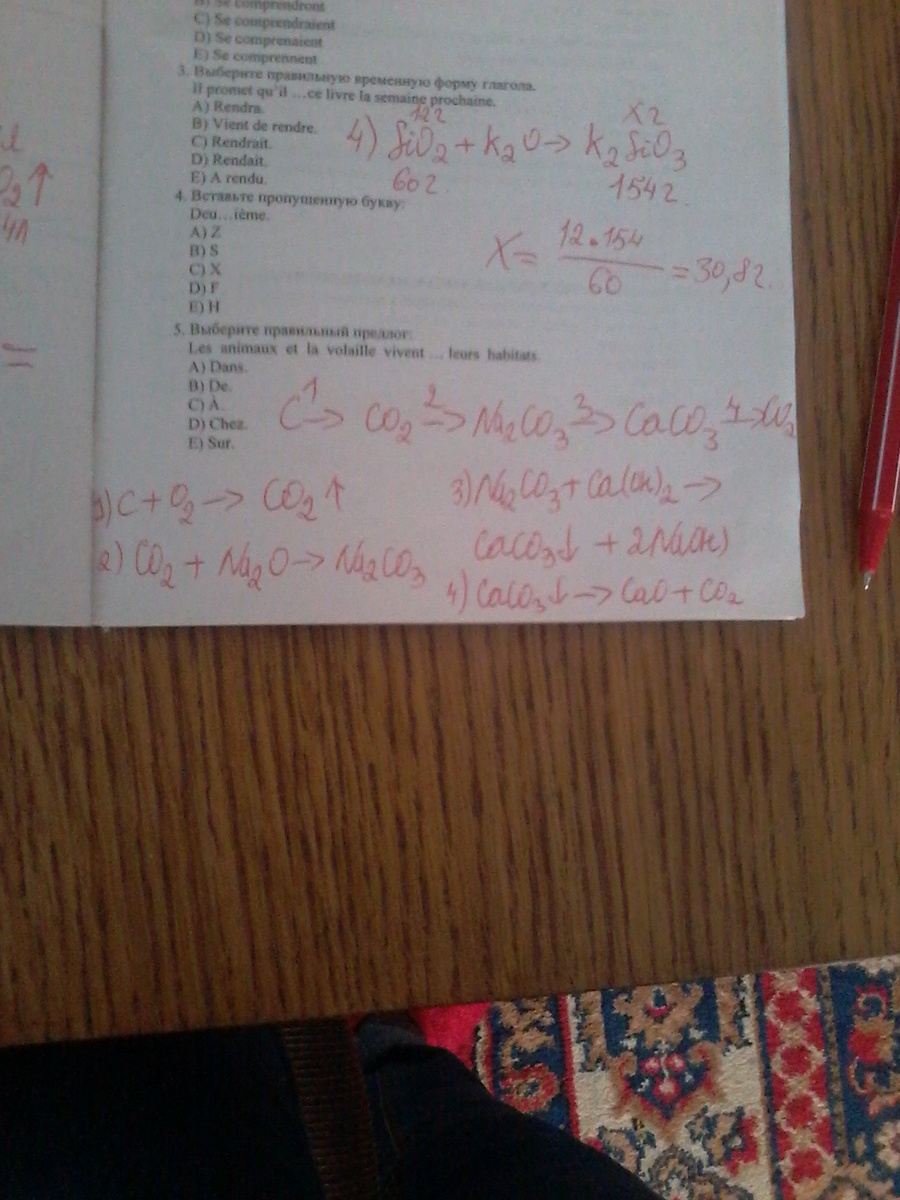 B) Se comprendront
C) Se comprendraient
D) Se comprenaient
E) Se comprennent
3. Выберите правильную временную форму глагола.
Il promet qu'il ...ce livre la semaine prochaine.
A) Rendra.
B) Vient de rendre.
C) Rendrait.
D) Rendait.
E) A rendu.
4. Вставьте пропущенную букву:
Deu...ième.
A) Z
B) S
C) X
D) F
E) H
5. Выберите правильный предлог:
Les animaux et la volaille vivent ... leurs habitats.
A) Dans.
B) De.
C) À.
D) Chez.
E) Sur.
12г xг
4) SiO2 + K2O → K2SiO3
60г 154г.
X = 12·154 / 60 = 30,8г.
C 1→ CO2 2→ Na2CO3 3→ CaCO3 4→ CO2
1) C + O2 → CO2↑
2) CO2 + Na2O → Na2CO3
3) Na2CO3 + Ca(OH)2 →
CaCO3↓ + 2NaOH
4) CaCO3↓ → CaO + CO2